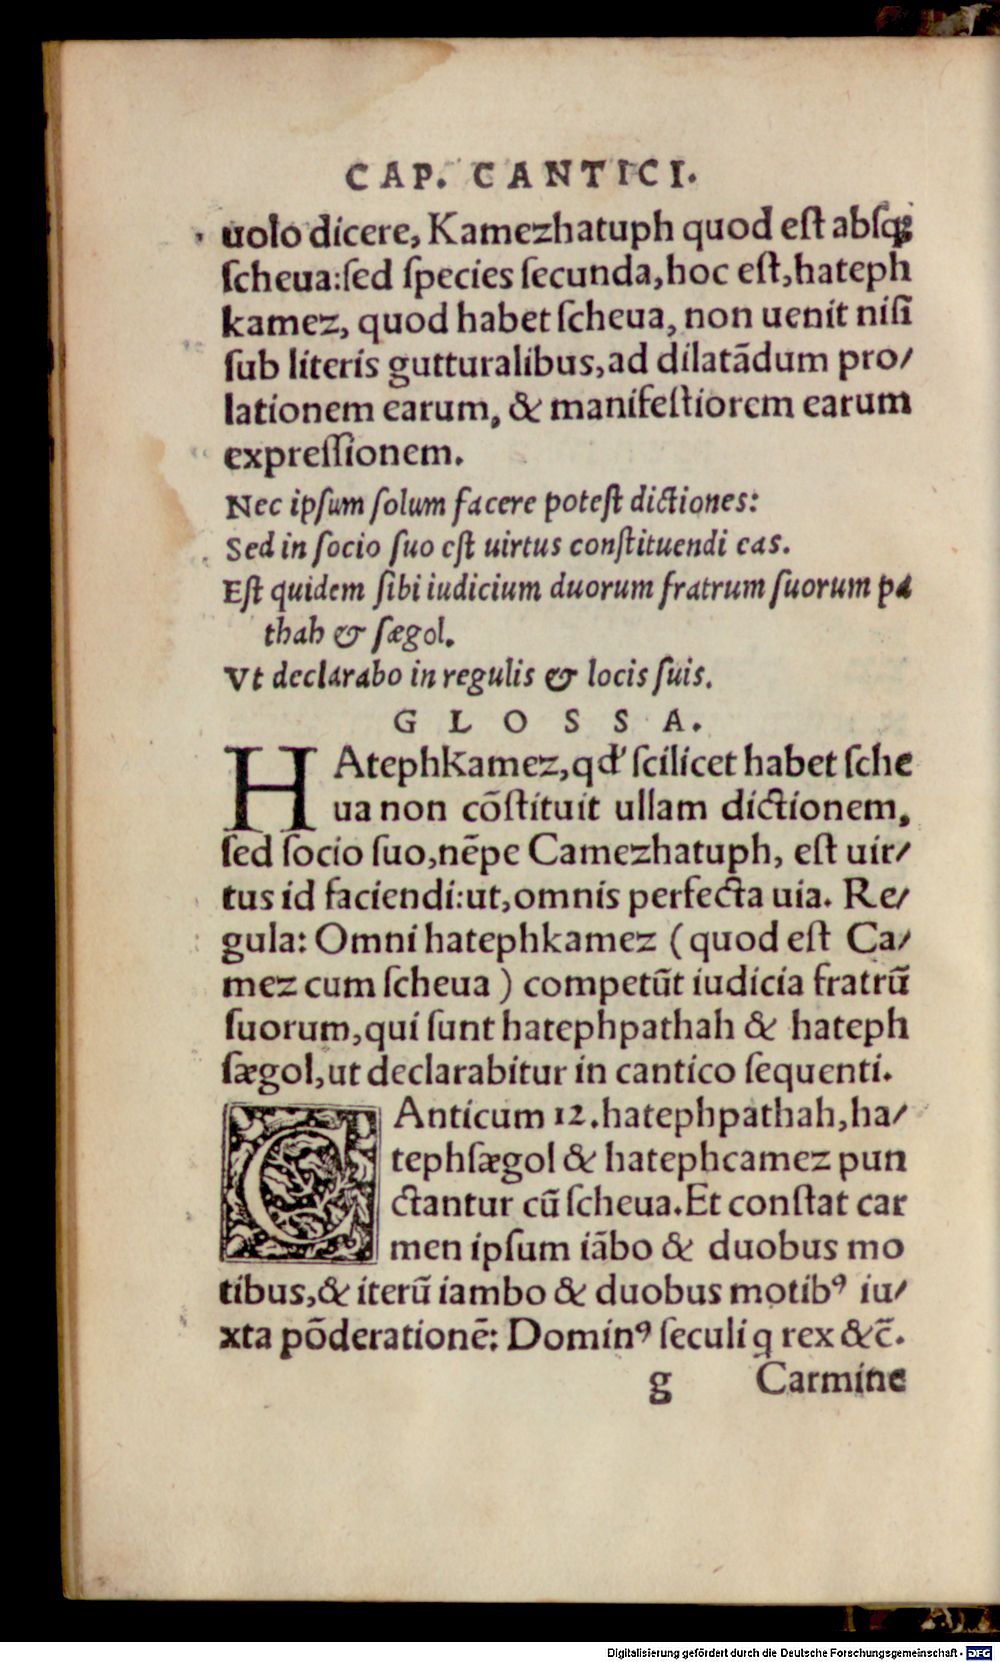 CAP. CANTICI.
uolo dicere, Kamezhatuph quod eſt abſq;
ſcheua:ſed ſpecies ſecunda,hoc eſt,hateph
kamez, quod habet ſcheua, non uenit niſi
ſub literis gutturalibus,ad dilatãdum pro/
lationem earum, & manifeſtiorem earum
expreſſionem.
Nec ipſum ſolum facere poteſt dictiones:
Sed in ſocio ſuo eſt uirtus conſtituendi eas.
Eſt quidem ſibi iudicium duorum fratrum ſuorum pa
thah & ſægol.
Vt declarabo in regulis & locis ſuis.
GLOSSA.
HAtephKamez,qđ ſcilicet habet ſche
ua non cõſtituit ullam dictionem,
ſed ſocio ſuo,nẽpe Camezhatuph, eſt uir/
tus id faciendi:ut,omnis perfecta uia. Re/
gula: Omni hatephkamez (quod eſt Ca/
mez cum ſcheua) competũt iudicia fratrũ
ſuorum,qui ſunt hatephpathah & hateph
ſægol,ut declarabitur in cantico ſequenti.
CAnticum 12.hatephpathah,ha/
tephſægol & hatephcamez pun
ctantur cũ ſcheua.Et conſtat car
men ipſum iãbo & duobus mo
tibus,& iterũ iambo & duobus motibꝰ iu/
xta põderationẽ: Dominꝰ ſeculi q rex &c̃.
g Carmine
Digitalisierung gefördert durch die Deutsche Forschungsgemeinschaft - DFG